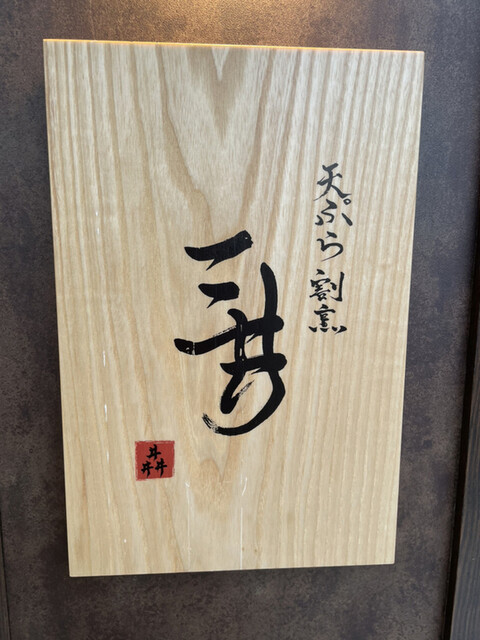 天ぷら 割烹
三井
井井井